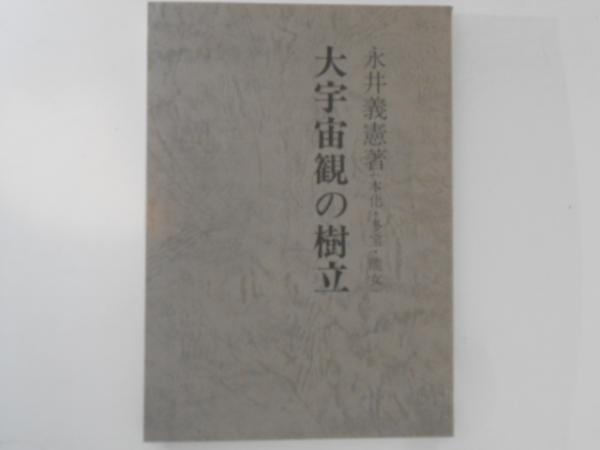 永井義憲著
大宇宙観の樹立